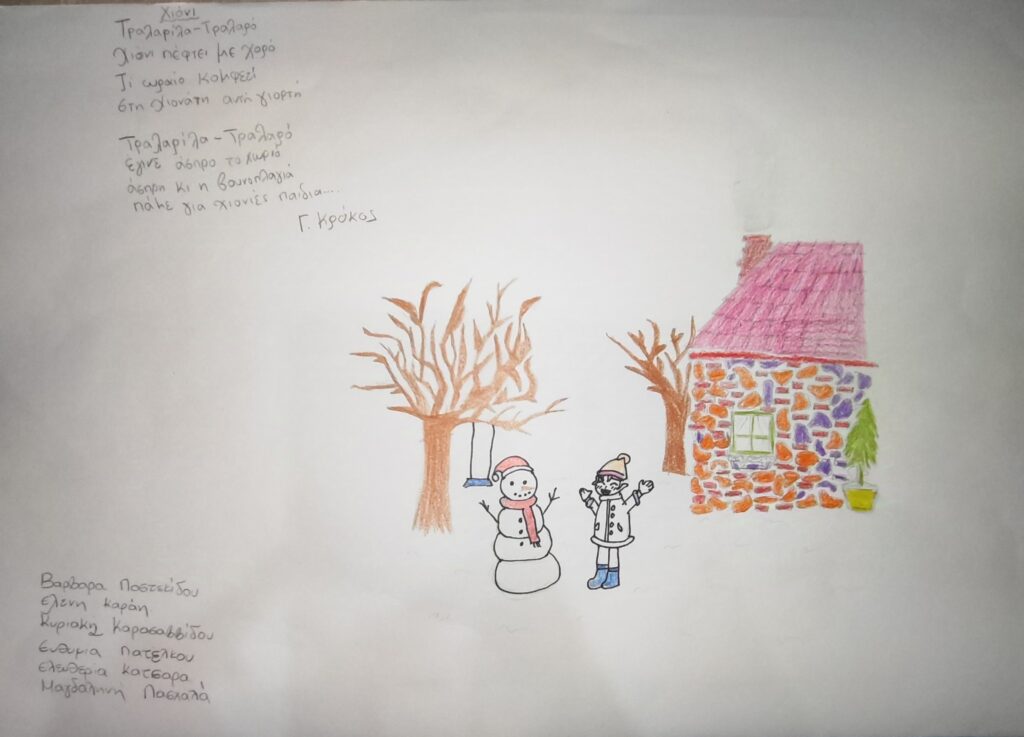 Χιόνι
Τραλαρίλα-Τραλαρό
Χιόνι πέφτει με χορό
Τι ωραίο κομφετί
στη χιονάτη αυτή γιορτή
Τραλαρίλα-Τραλαρό
έγινε άσπρο το χωριό
άσπρη κι η βουνοπλαγιά
πάμε για χιονιές παιδια....
Γ. Κρόκος
Βαρβαρα Ποστεκίδου
Ελενη Καράη
Κυριακη Καρασαββίδου
Ευθυμια Πατέλκου
Ελευθερία Κατσαρα
Μαγδαληνή Πασχαλά